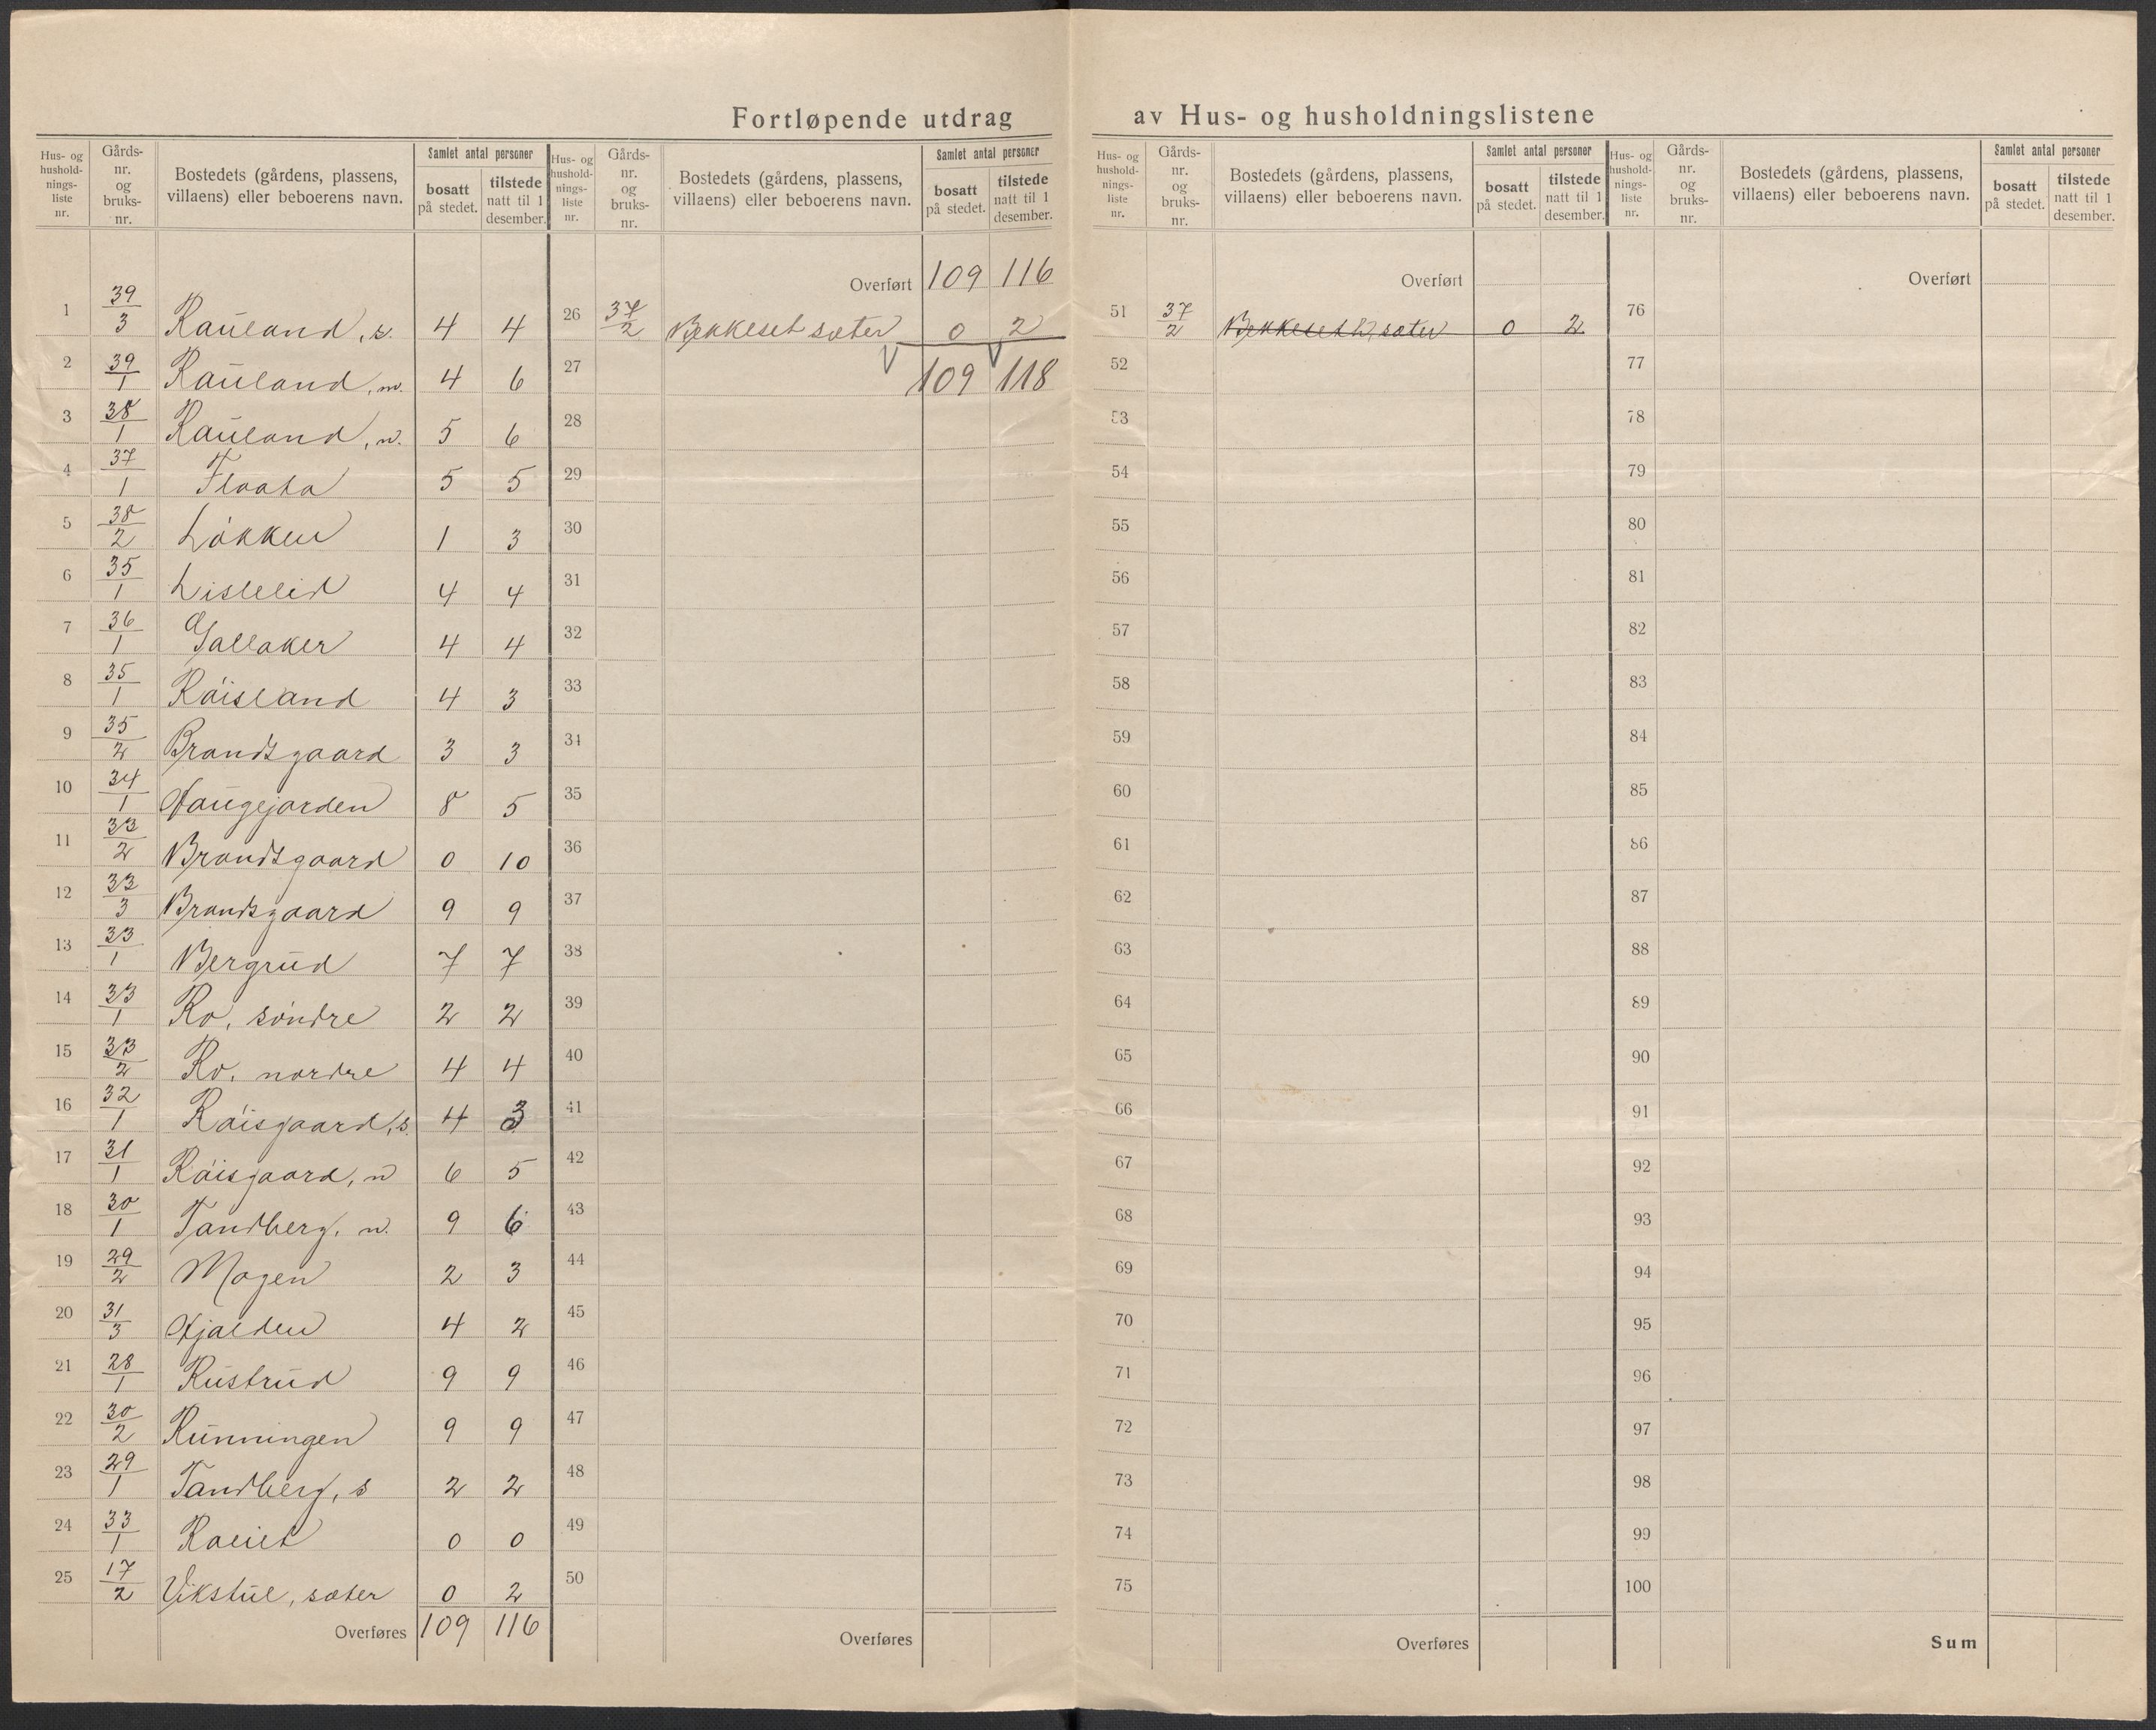 Fortløpende utdrag av Hus- og husholdningslistene
Hus- og husholdnings-liste nr. | Gårds-nr. og bruks-nr. | Bostedets (gårdens, plassens, villaens) eller beboerens navn. | Samlet antal personer | bosatt på stedet. | tilstede natt til 1 desember.
1 39/3 Rauland, s. 4 4
2 39/1 Rauland, m. 4 6
3 38/1 Rauland, n. 5 6
4 37/1 Flaata 5 5
5 38/2 Løkken 1 3
6 35/1 Lislelid 4 4
7 36/1 Gallaker 4 4
8 35/1 Røisland 4 3
9 35/2 Brandsgaard 3 3
10 34/1 Haugejorden 8 5
11 33/2 Brandsgaard 0 10
12 33/3 Brandsgaard 9 9
13 33/1 Bergrud 7 7
14 33/1 Ro, søndre 2 2
15 33/2 Ro, nordre 4 4
16 32/1 Røisgaard, s. 4 3
17 31/1 Røisgaard, n 6 5
18 30/1 Tandberg, n. 9 6
19 29/2 Mogen 2 3
20 31/3 Hjalden 4 2
21 28/1 Rustrud 9 9
22 30/2 Runningen 9 9
23 29/1 Tandberg, s 2 2
24 33/1 0 0
25 17/2 Vikstul, sæter 0 2
Overføres 109 116
Hus- og husholdnings-liste nr. | Gårds-nr. og bruks-nr. | Bostedets (gårdens, plassens, villaens) eller beboerens navn. | Samlet antal personer | bosatt på stedet. | tilstede natt til 1 desember.
Overført 109 116
26 37/2 Bekkeset sæter 0 2
27 109 118
28
29
30
31
32
33
34
35
36
37
38
39
40
41
42
43
44
45
46
47
48
49
50
Overføres
Hus- og husholdnings-liste nr. | Gårds-nr. og bruks-nr. | Bostedets (gårdens, plassens, villaens) eller beboerens navn. | Samlet antal personer | bosatt på stedet. | tilstede natt til 1 desember.
Overført
51 37/2 Bekkeset sæter 0 2
52
53
54
55
56
57
58
59
60
61
62
63
64
65
66
67
68
69
70
71
72
73
74
75
Overføres
Hus- og husholdnings-liste nr. | Gårds-nr. og bruks-nr. | Bostedets (gårdens, plassens, villaens) eller beboerens navn. | Samlet antal personer | bosatt på stedet. | tilstede natt til 1 desember.
Overført
76
77
78
79
80
81
82
83
84
85
86
87
88
89
90
91
92
93
94
95
96
97
98
99
100
Sum